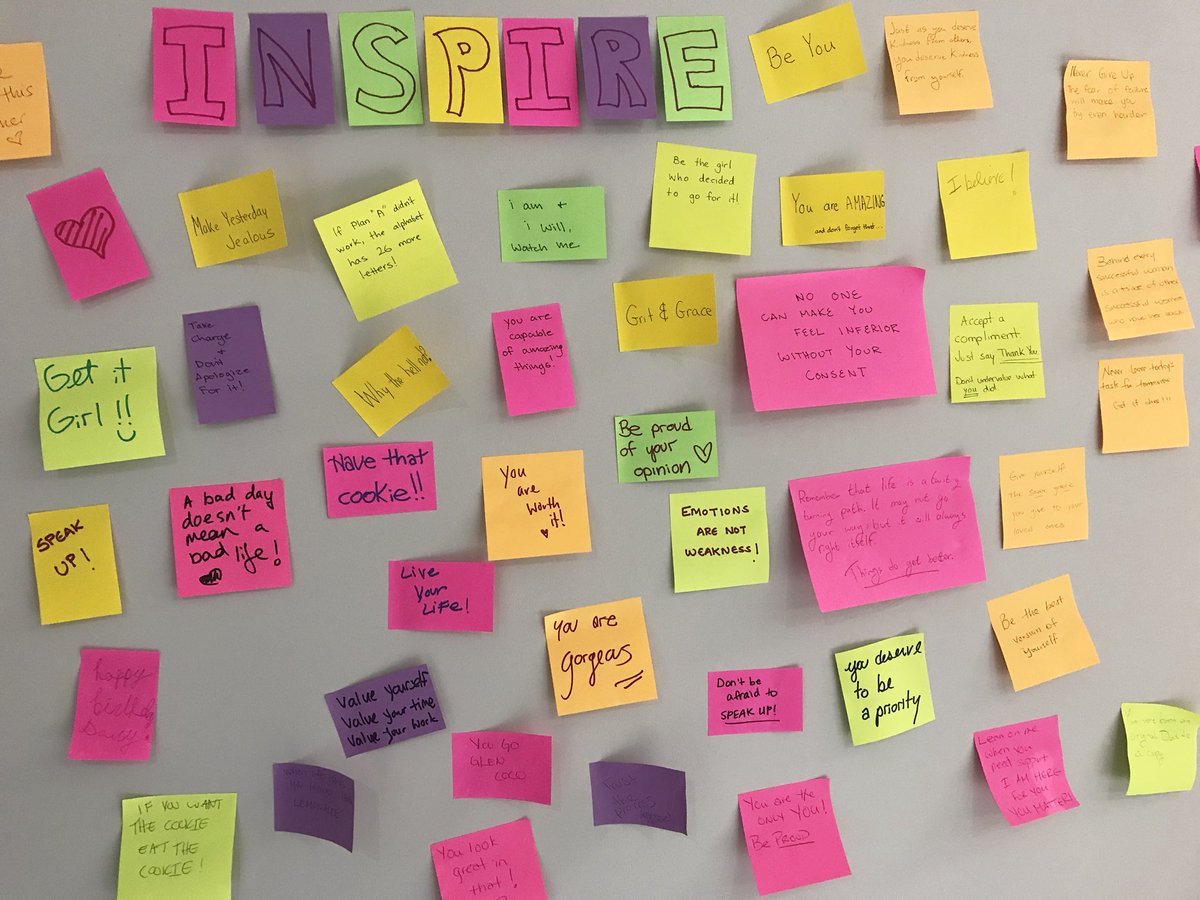 INSPIRE
Be You
Just as you deserve
Kindness from others,
you deserve Kindness
from yourself.
Never Give Up
The fear of failure
will make you
try even harder
this
Make Yesterday
Jealous
If Plan "A" didn't
work, the alphabet
has 26 more
letters!
i am +
i will,
watch me
Be the girl
who decided
to go for it!
You are AMAZING
and don't forget that...
I believe!
Behind every
successful woman
is a tribe of other
successful women
who have her back
Take
Charge
+
Don't
Apologize
For it!
Why the hell not?
you are
capable
of amazing
things!
Grit & Grace
NO ONE
CAN MAKE YOU
FEEL INFERIOR
WITHOUT YOUR
CONSENT
Accept a
compliment.
Just say Thank You.
Don't undervalue what
you did.
Get it
Girl!!
Never today's
for tomorrow
Get it done!!!
Have that
cookie!!
Be proud
of your
opinion
You
are
worth
it!
A bad day
doesn't
mean a
bad life!
SPEAK
UP!
EMOTIONS
ARE NOT
WEAKNESS!
Remember that life is a twisty
turning path. It may not go
your way, but it will always
right itself.
Things do get better.
Give yourself
the same grace
you give to your
loved ones
Live
Your
Life!
You are
gorgeas
Be the best
version of
yourself
happy
birthday
Value yourself
Value your time
Value your work
Don't be
afraid to
SPEAK UP!
you deserve
to be
a priority
You GO
GLEN
COCO
Lean on me
when you
need support
I AM HERE
for you
YOU MATTER!
original
a copy
LEMONADE
Trust
You are the
ONLY YOU!
Be PROUD
IF YOU WANT
THE COOKIE
EAT THE
COOKIE!
You look
great in
that!